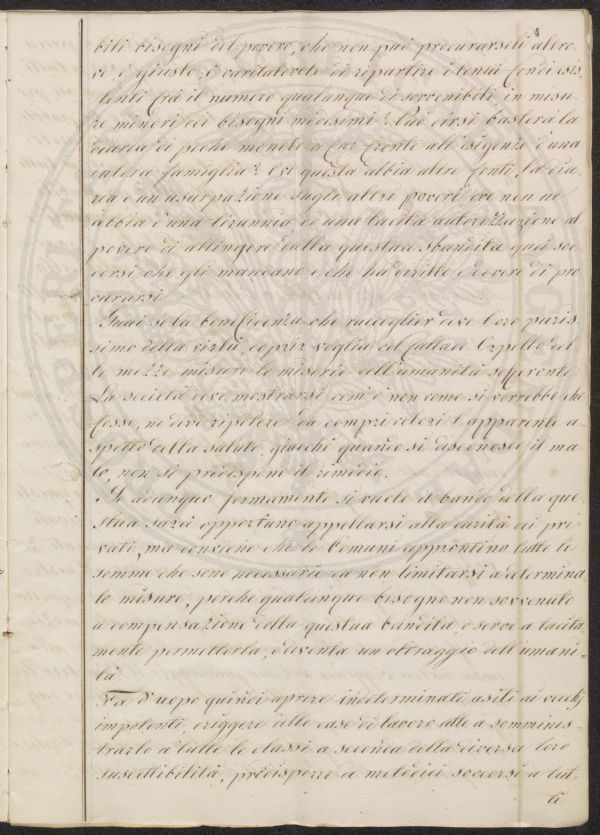 4
bili bisogni del povero, che non può procurarseli altro-
ve, è giusto, è caritatevole di ripartire i tenui fondi esis-
tenti frà il numero qualunque di sovvenibili in misu-
re minori dei bisogni medesimi? Può dirsi basterà la
diaria di poche monete a far fronte all'esigenze d'una
intera famiglia? Ove questa abbia altre fonti, la dia-
ria è un usurpazione sugli altri poveri ove non ne
abbia è una tirannia ed una tacita autorizzazione al
povero di attingere dalla questua sbandita quei soc-
corsi che gli mancano e che ha diritto e dovere di pro
curarsi.
Guai se la beneficenza che raccoglier deve l'oro puris-
simo della virtù, coprir voglia col fallace Orpello del-
le mezze misure le miserie dell'umanità sofferente.
La società deve mostrarsi com'è non come si vorrebbe che
fosse, nè deve ripetere da compri colori l'apparente a-
spetto della salute, giacchè quando si disconosce il ma-
le, non si predispone il rimedio.
Se adunque fermamente si vuole il bando della que-
stua sarà opportuno appellarsi alla carità dei pri-
vati, ma conviene che le Comuni approntino tutte le
somme che sono necessarie ed non limitarsi a determina-
te misure, perchè qualunque bisogno non sovvenuto
a compensazione della questua bandita, o serve a tacita-
mente permetterla, o diventa un oltraggio dell'umani-
tà.
Fa d'uopo quindi aprire indeterminati asili ai vecchj
impotenti, eriggere delle case di lavoro atte a somminis-
trarlo a tutte le classi a seconda della diversa loro
suscettibilità, predisporre de metodici soccorsi a tut-
ti